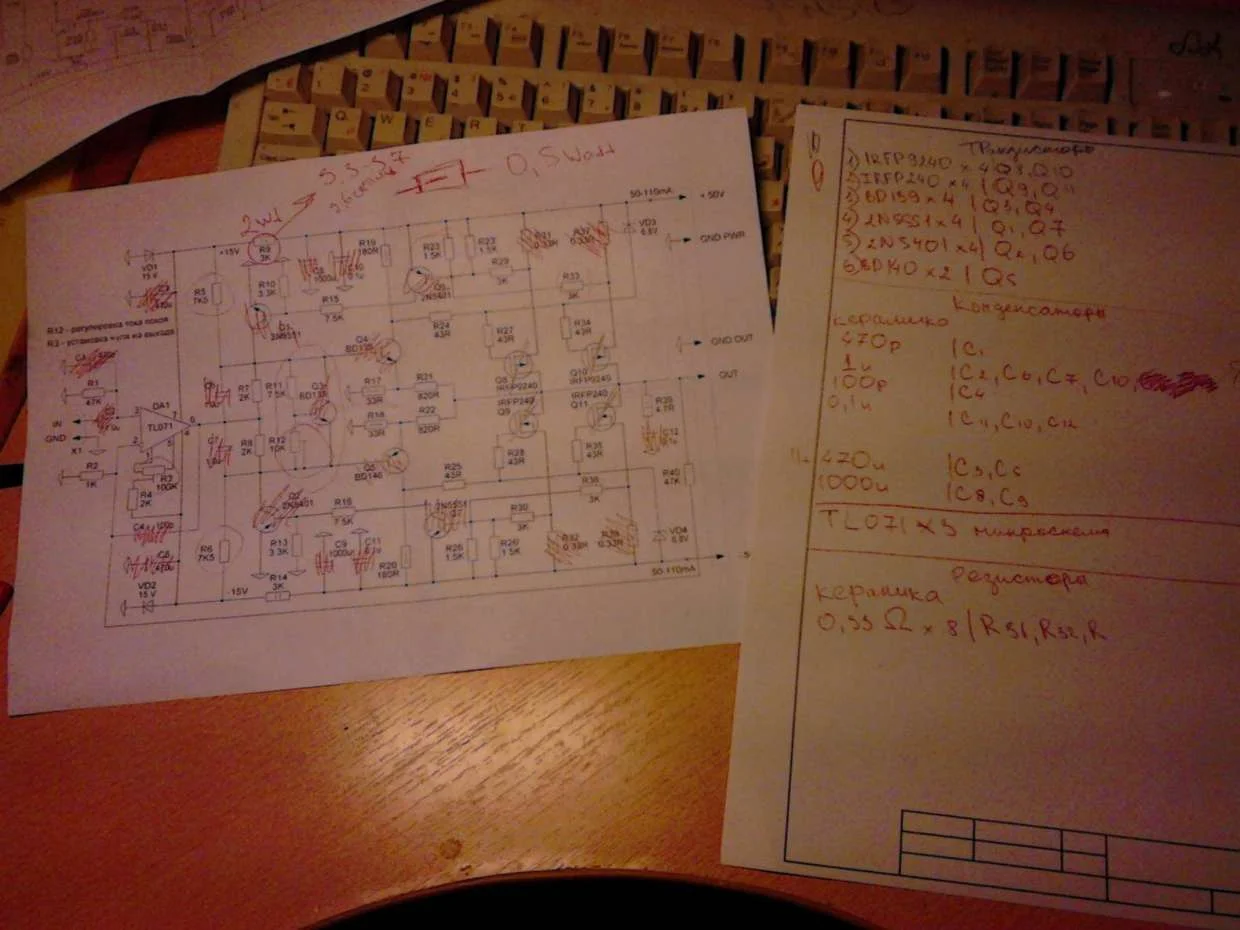 5.5.57
0,5 Watt
2W
50-110mA
+50V
GND PWR
VD3
6.8V
VD1
15 V
+15V
R9
3K
R19
180R
R23
1.5K
R23
1.5K
R29
3K
R31
0.33R
R37
0.33R
R5
7K5
R10
3.3K
R15
7.5K
2N5401
R33
3K
R12 - регулировка тока покоя
R3 - установка нуля на выходе
R24
43R
R27
43R
R34
43R
GND OUT
OUT
Q4
R1
47K
R7
2K
R11
7.5K
Q3
R17
33R
R21
820R
Q8
IRFP9240
Q10
IRFP9240
IN
GND
X1
DA1
TL071
R18
33R
R22
820R
IRFP240
Q9
IRFP240
Q11
R39
4.7R
C12
R2
1K
R3
100K
R4
2K
R8
2K
R12
10K
Q5
BD140
R28
43R
R35
43R
R40
47K
R25
43R
R36
3K
R16
7.5K
R30
3K
R6
7K5
R13
3.3K
C9
1000u
C11
R20
180R
R26
1.5K
R26
1.5K
R32
0.33R
VD4
6.8V
VD2
15 V
-15V
R14
3K
50-110mA
Транзисторы
1) IRFP9240 x 4 Q8, Q10
2) IRFP240 x 4 | Q9, Q11
3) BD139 x 4 | Q3, Q4
4) 2N5551 x 4 | Q1, Q7
5) 2N5401 x 4 | Q2, Q6
6) BD140 x 2 | Q5
Конденсаторы
керамика
470p |C1
1u |C2, C6, C7, C10,
100p |C4
0,1u |C11, C10, C12
470u |C3, C6
1000u |C8, C9
TL071 X 3 микросхема
Резисторы
керамика
0,33 Ω x 8 | R31, R32, R